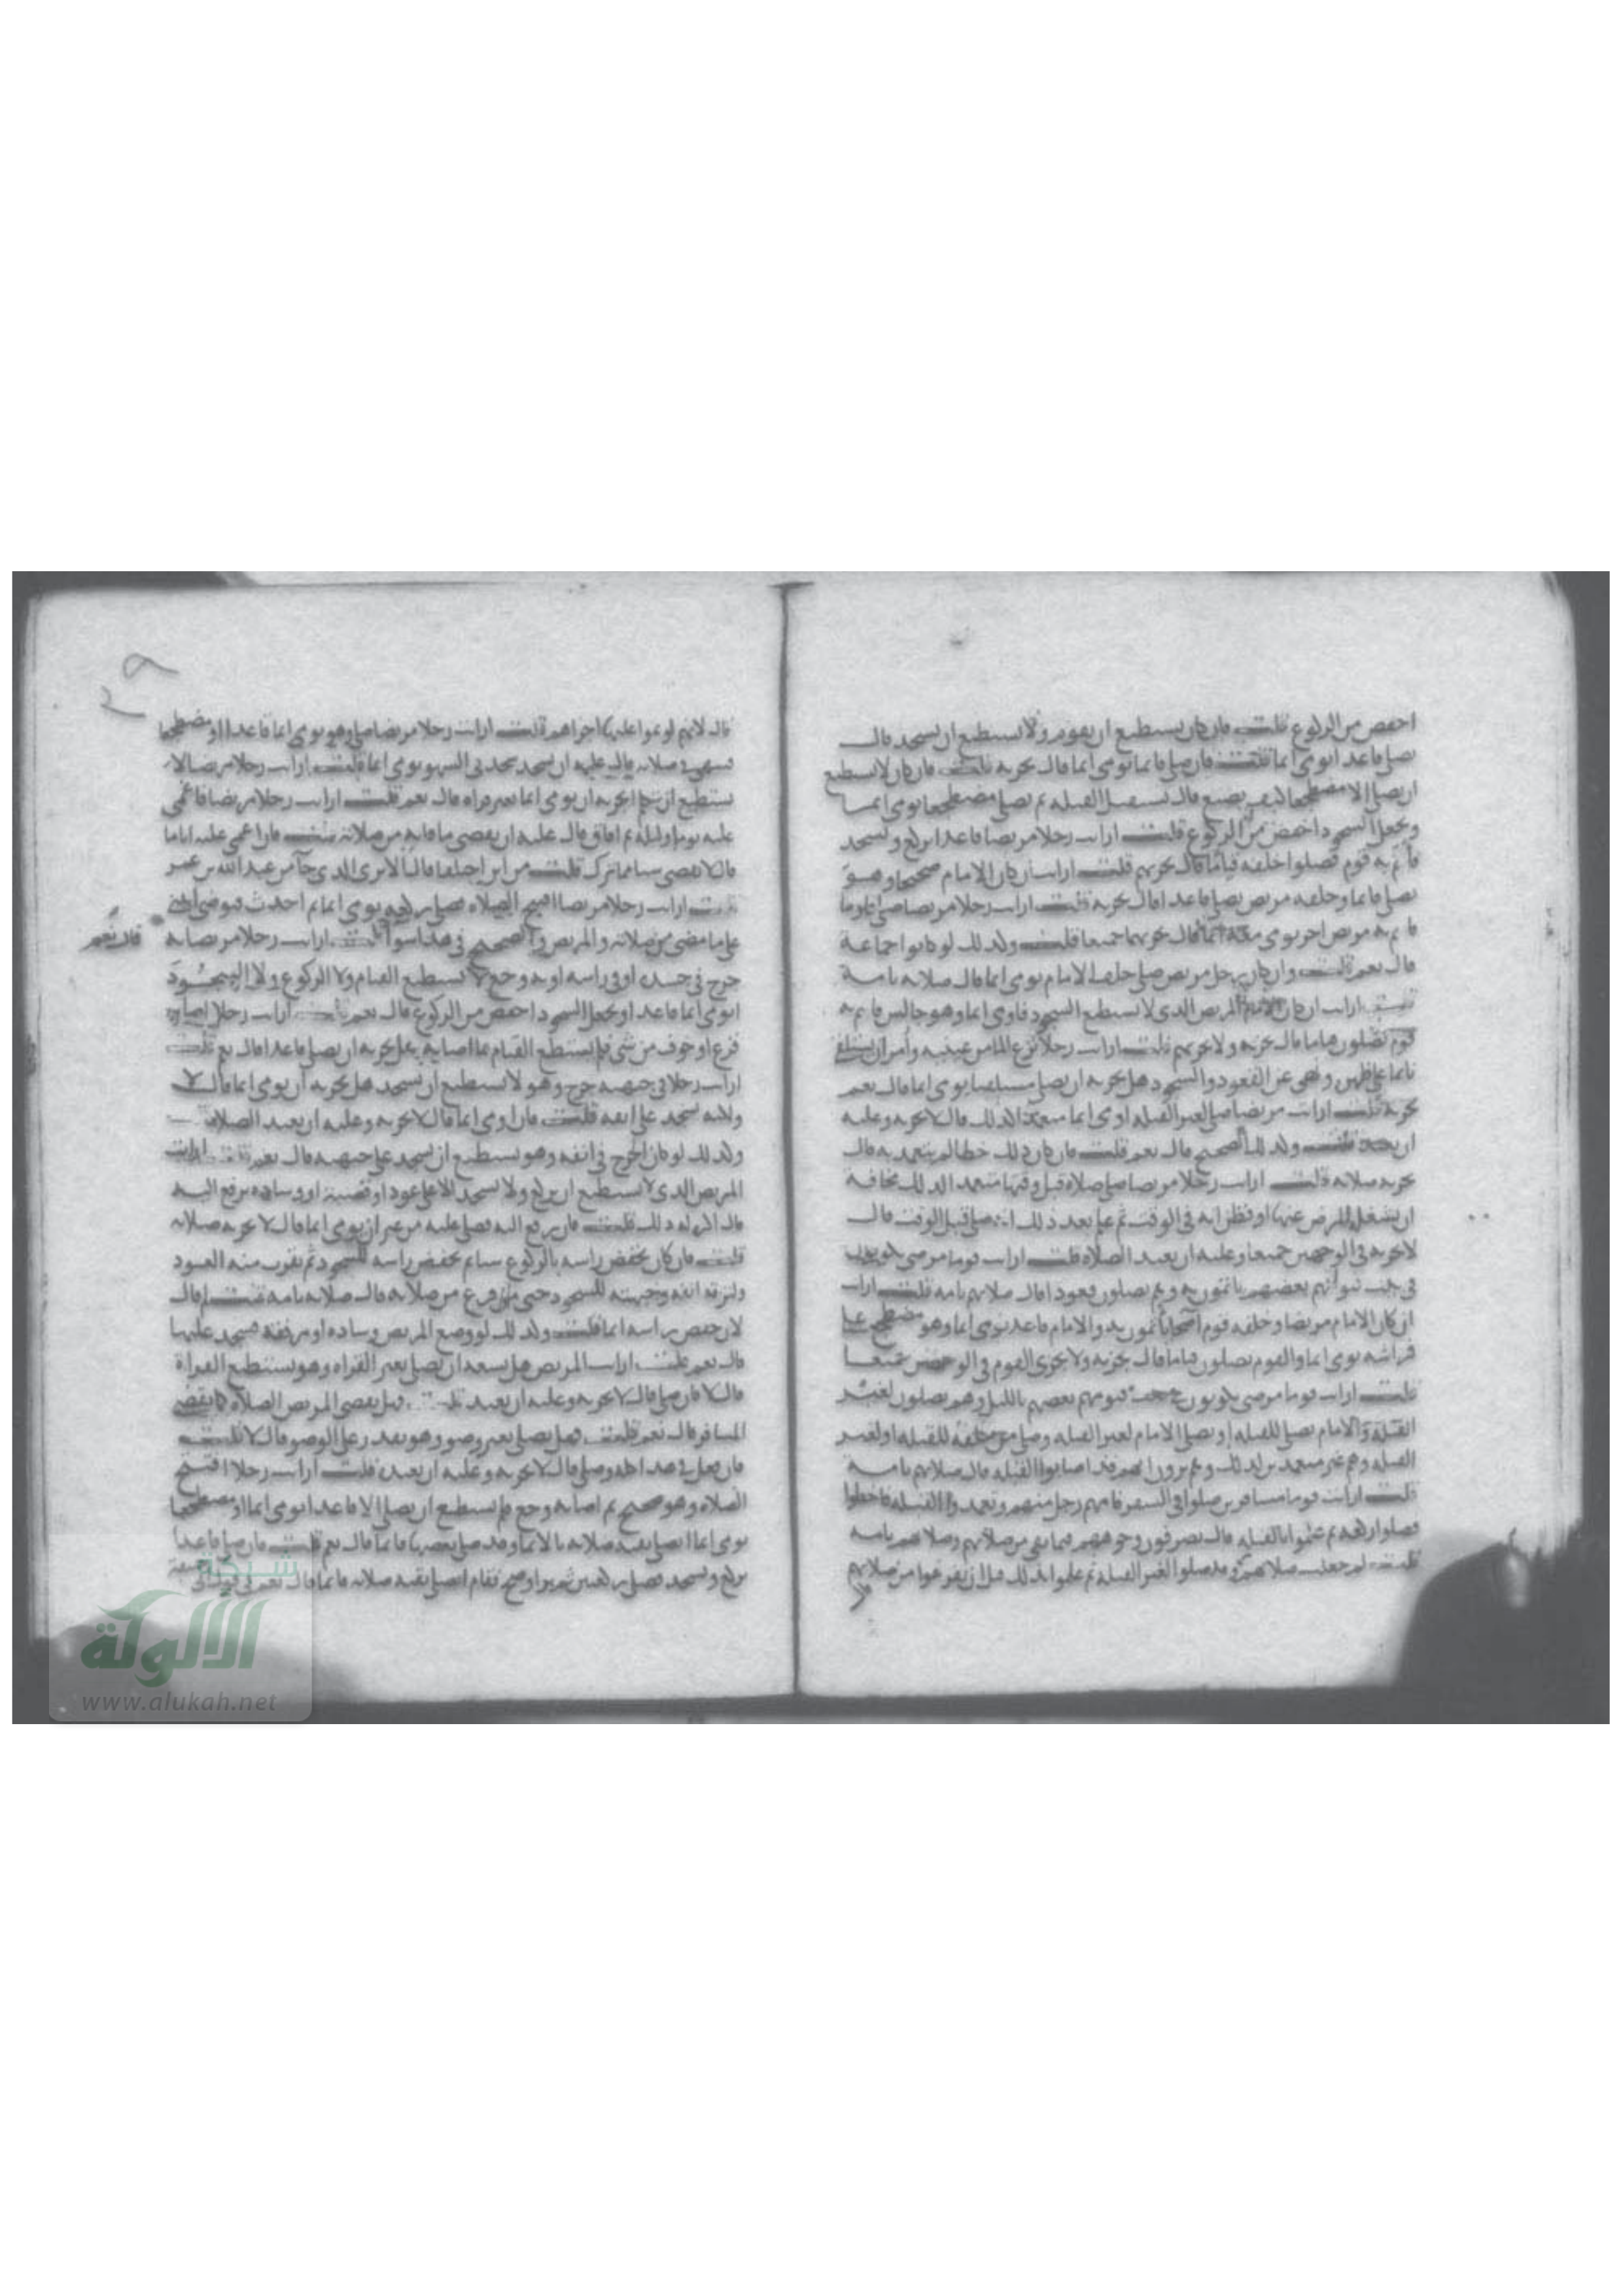 اخفض من الركوع قلت فان كان يستطيع ان يقوم ولا يستطيع ان يسجد قال
يصلي قاعدا يومى ايما قلت فان صلى قائما يومى ايما قال يجزيه قلت فان كان لا يستطيع
ان يصلي الا مضطجعا كيف يصنع قال يستقبل القبلة ثم يصلي مضطجعا يومى ايما
ويجعل السجود اخفض من الركوع قلت ارايت رجلا مريضا صلى قاعدا يركع ويسجد
فائتم به قوم فصلوا خلفه قياما قال يجزيهم قلت ارايت ان كان الامام صحيحا وهو
يصلي قائما وخلفه مريض يصلي قاعدا قال يجزيه قلت ارايت رجلا مريضا صلى يوما
فائتم به مريض اخر يومى معه ايما قال يجزيهما جميعا قلت وكذلك لو كانوا جماعة
قال نعم قلت وان كان رجل مريض صلى خلف الامام يومى ايما قال صلاته تامة
قلت ارايت ان كان الامام المريض الذي لا يستطيع السجود فاومى ايما وهو جالس فائتم به
قوم يصلون قياما قال يجزيه ولا يجزيهم قلت ارايت رجلا نزع الما من عينيه وامر ان يستلقي
نائما على ظهره ونهى عن القعود والسجود هل يجزيه ان يصلي مستلقيا يومى ايما قال نعم
يجزيه قلت ارايت مريضا صلى لغير القبلة اومى ايما متعمدا لذلك قال لا يجزيه وعليه
ان يعيد قلت وكذلك الصحيح قال نعم قلت فان كان ذلك خطا لم يتعمد به قال
يجزيه صلاته قلت ارايت رجلا مريضا صلى صلاة قبل وقتها متعمدا لذلك مخافة
ان يشغله المرض عنها او ظن انه في الوقت ثم علم بعد ذلك انه صلى قبل الوقت قال
لا يجزيه في الوجهين جميعا وعليه ان يعيد الصلاة قلت ارايت قوما مرضى يكونون
في بيت فيؤمهم بعضهم ياتمون به وهم يصلون قعودا قال صلاتهم تامة قلت ارايت
ان كان الامام مريضا وخلفه قوم اصحا ياتمون به والامام قاعد يومى ايما وهو مضطجع على
فراشه يومى ايما والقوم يصلون قياما قال يجزيه ولا يجزي القوم في الوجهين جميعا
قلت ارايت قوما مرضى يكونون في بيت فيومهم بعضهم بالليل وهم يصلون لغير
القبلة والامام يصلي للقبلة او يصلي الامام لغير القبلة وصلى من خلفه للقبلة او لغير
القبلة وهم غير متعمدين لذلك وهم يرون انهم قد اصابوا القبلة قال صلاتهم تامة
قلت ارايت قوما مسافرين صلوا في السفر فامهم رجل منهم وتعمدوا القبلة فاخطوا
فصلوا ركعة ثم علموا بالقبلة قال يصرفون وجوههم فيما بقي من صلاتهم وصلاتهم تامة
قلت لم جعلت صلاتهم تامة وقد صلوا لغير القبلة ثم علموا بذلك قبل ان يفرغوا من صلاتهم
قال لانهم لو تموا عليها اجزاهم قلت ارايت رجلا مريضا صلى وهو يومى ايما قاعدا او مضطجعا
فسهى في صلاته قال عليه ان يسجد سجدتي السهو يومى ايما قلت ارايت رجلا مريضا لا
يستطيع ان يتكلم ايجزيه ان يومى ايما بغير قراه قال نعم قلت ارايت رجلا مريضا فاغمي
عليه يوما وليلة ثم افاق قال عليه ان يقضي ما فاته من صلاته قلت فان اغمي عليه اياما
قال لا يقضي شيا مما ترك قلت من اين اختلفا قال للاثر الذي جا من عبد الله بن عمر
قلت ارايت رجلا مريضا افتتح الصلاة فصلى ركعة يومى ايما ثم احدث فتوضا ايبني
على ما مضى من صلاته والمريض والصحيح في هذا سوا قلت ارايت رجلا مريضا به
قال نعم
جرح في جسده او في راسه او به وجع لا يستطيع القيام ولا الركوع ولا السجود
ايومى ايما قاعدا ويجعل السجود اخفض من الركوع قال نعم قلت ارايت رجلا اصابه
فزع او خوف من شي فلم يستطع القيام مما اصابه هل يجزيه ان يصلي قاعدا قال نعم قلت
ارايت رجلا في جبهته جرح وهو لا يستطيع ان يسجد هل يجزيه ان يومى ايما قال لا
ولكنه يسجد على انفه قلت فان اومى ايما قال لا يجزيه وعليه ان يعيد الصلاة
وكذلك لو كان الجرح في انفه وهو يستطيع ان يسجد على جبهته قال نعم قلت ارايت
المريض الذي لا يستطيع ان يركع ولا يسجد الا على عود او قصبة او وسادة يرفع اليه
قال اكره له ذلك قلت فان رفع اليه فصلى عليه من غير ان يومى ايما قال لا يجزيه صلاته
قلت فان كان يخفض راسه بالركوع شيا ثم يخفض راسه للسجود ثم يقرب منه العود
ويلزقه انفه وجبهته للسجود حتى فرغ من صلاته قال صلاته تامة قلت لم قال
لان خفض راسه ايما قلت وكذلك لو وضع المريض وسادة او مرفقة فسجد عليها
قال نعم قلت ارايت المريض هل يسعه ان يصلي بغير القراه وهو يستطيع القراة
قال لا فان صلى قال لا يجزيه وعليه ان يعيد قلت فهل يقضي المريض الصلاة كما يقضي
المسافر قال نعم قلت فهل يصلي بغير وضو وهو يقدر على الوضو قال لا قلت
فان فعل في هذا كله وصلى قال لا يجزيه وعليه ان يعيد قلت ارايت رجلا افتتح
الصلاة وهو صحيح ثم اصابه وجع فلم يستطع ان يصلي الا قاعدا يومى ايما او مضطجعا
يومى ايما ايصلي بقية صلاته بالايما وقد صلى بعضها قائما قال نعم قلت فان صلى قاعدا
يركع ويسجد فصلى ركعتين ثم برا وصح فقام ايصلي بقية صلاته قائما قال نعم في
شبكة
الألوكة
www.alukah.net